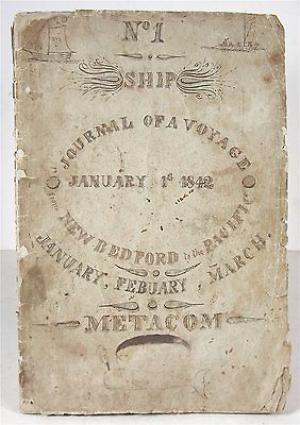 No 1
SHIP
JOURNAL OF A VOYAGE
JANUARY 1st 1842
from NEW BEDFORD to the PACIFIC
JANUARY, FEBUARY, MARCH.
METACOM